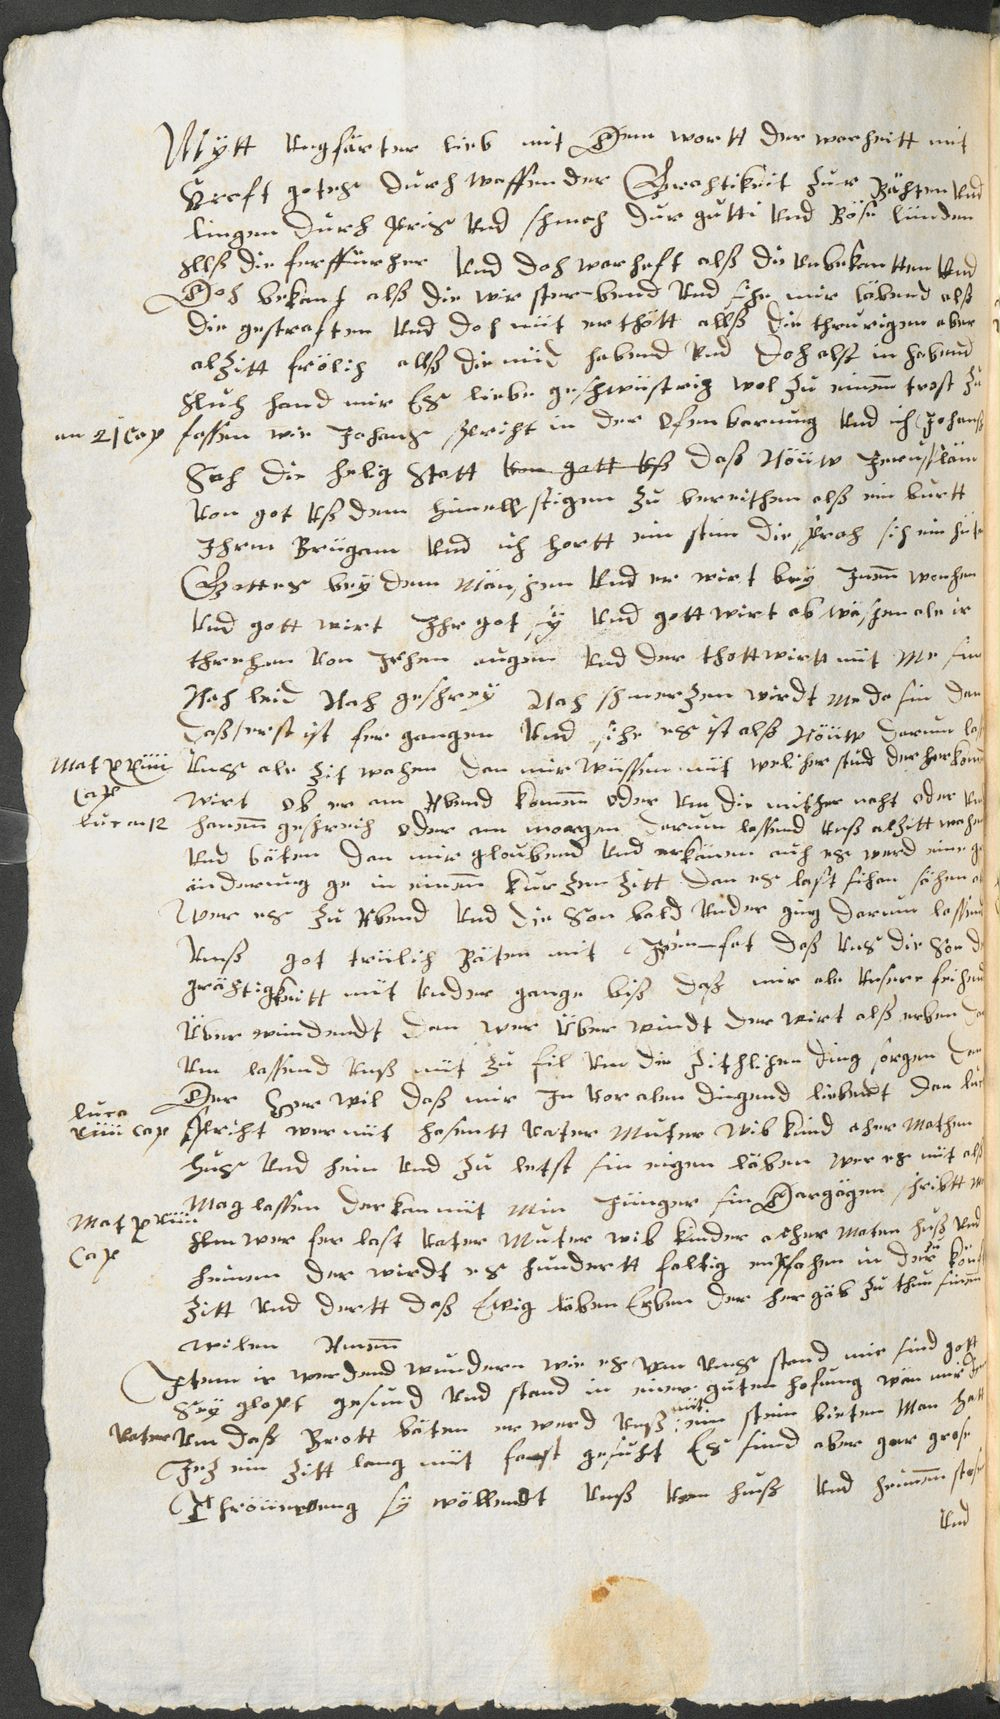 Mytt ungfärter lieb mit Dem wortt der warheitt mit
Kraft gotes durch waffen der Grechtikeit zur Rächten und
lingen durch Pris und schmach dur gutti und Böse lünden
Alls die ferffürher und doch warhaft alß die unbekantten und
Doch bekant alß die wir sterbend und sihe mir läbend alß
die gestraften und doch nüt erthött allß die thrurigen aber
alzitt frölich allß die nüd habend und doch alß in habend
Auch hand mir Es liebe geschwüstrig wol zu einem trost zu
am 21 Cap fassen wie Johans spricht in der Ofenbarung und ich Johans
Sach die helig Statt von gott uß daß Nöüw Jerusaläm
von got uß dem himell stigen zu bereithen alß ein burtt
Ihrem Brügam und ich hortt ein stim die sprach sich ein hüte
Gottes bey den Mänschen und er wirt bey Inen wonhen
und gott wirt Ihr got sy und gott wirt ab wäschen ale ir
threhen von Irhen augen und der thott wirtt nüt Me sin
Noch leid Noch geschrey Noch schmerzen wirdt Me da sin dan
daß erst ist fer gangen und sihe es ist alß Nöüw darum lass
Mat XXIIII Cap
uns ale Zit wachen dan mir wüssen nüt welicher stund der her kom
wirt ob er am Abend komm oder um die mither nacht oder um
Lucam 12
hanenn geschreich oder am morgen darum lassend unß alzitt wachen
und bäten dan mir gloubend und erkänen auch es werd eine ge
änderung ge in einem kurzen Zitt dan es last sichen sächen al
Wer es zu Abend und die Son bald under ging darum lassend
unß got trülich Bäten mit daß uns die Son der
grächtigkeitt nüt under gange biß daß mir ale unsere feihend
Über windendt dan wer über windt der wirt alß erben da
rum lassend unß nüt zu fil um die Zithlichen ding sorgen dan
Der Her wil daß mir In vor alen dingend liebendt dan luca
luca XIIII cap
spricht wer nüt hasentt vater Muter wib kind acher Mathen
huß und hein und zu letst sin eigen läben wer es nüt alß
Mag lassen der kan nüt Min Jünger sin Dargägen schribtt
Mat XVIIII Cap
wer fer last vater Muter wib kinder acher Maten huß und
heimen der wirdt es hundertt faltig enpfachen in der
Zitt und dertt daß Ewig läben Erben der her gäb zu thun sinen
wilen Amen
Item ir werdend wundern wie es um unß stand mir sind gott
Sey glopt gesund und stand in einer guten hofung wan mir den
vater um daß Brott bäten er werd unß nüt ein stein bieten Man hatt
Jez ein Zitt lang nüt fast gesucht Es sind aber gar grose
Thröüwung sy wöllendt unß von huß und heimen stosen
und